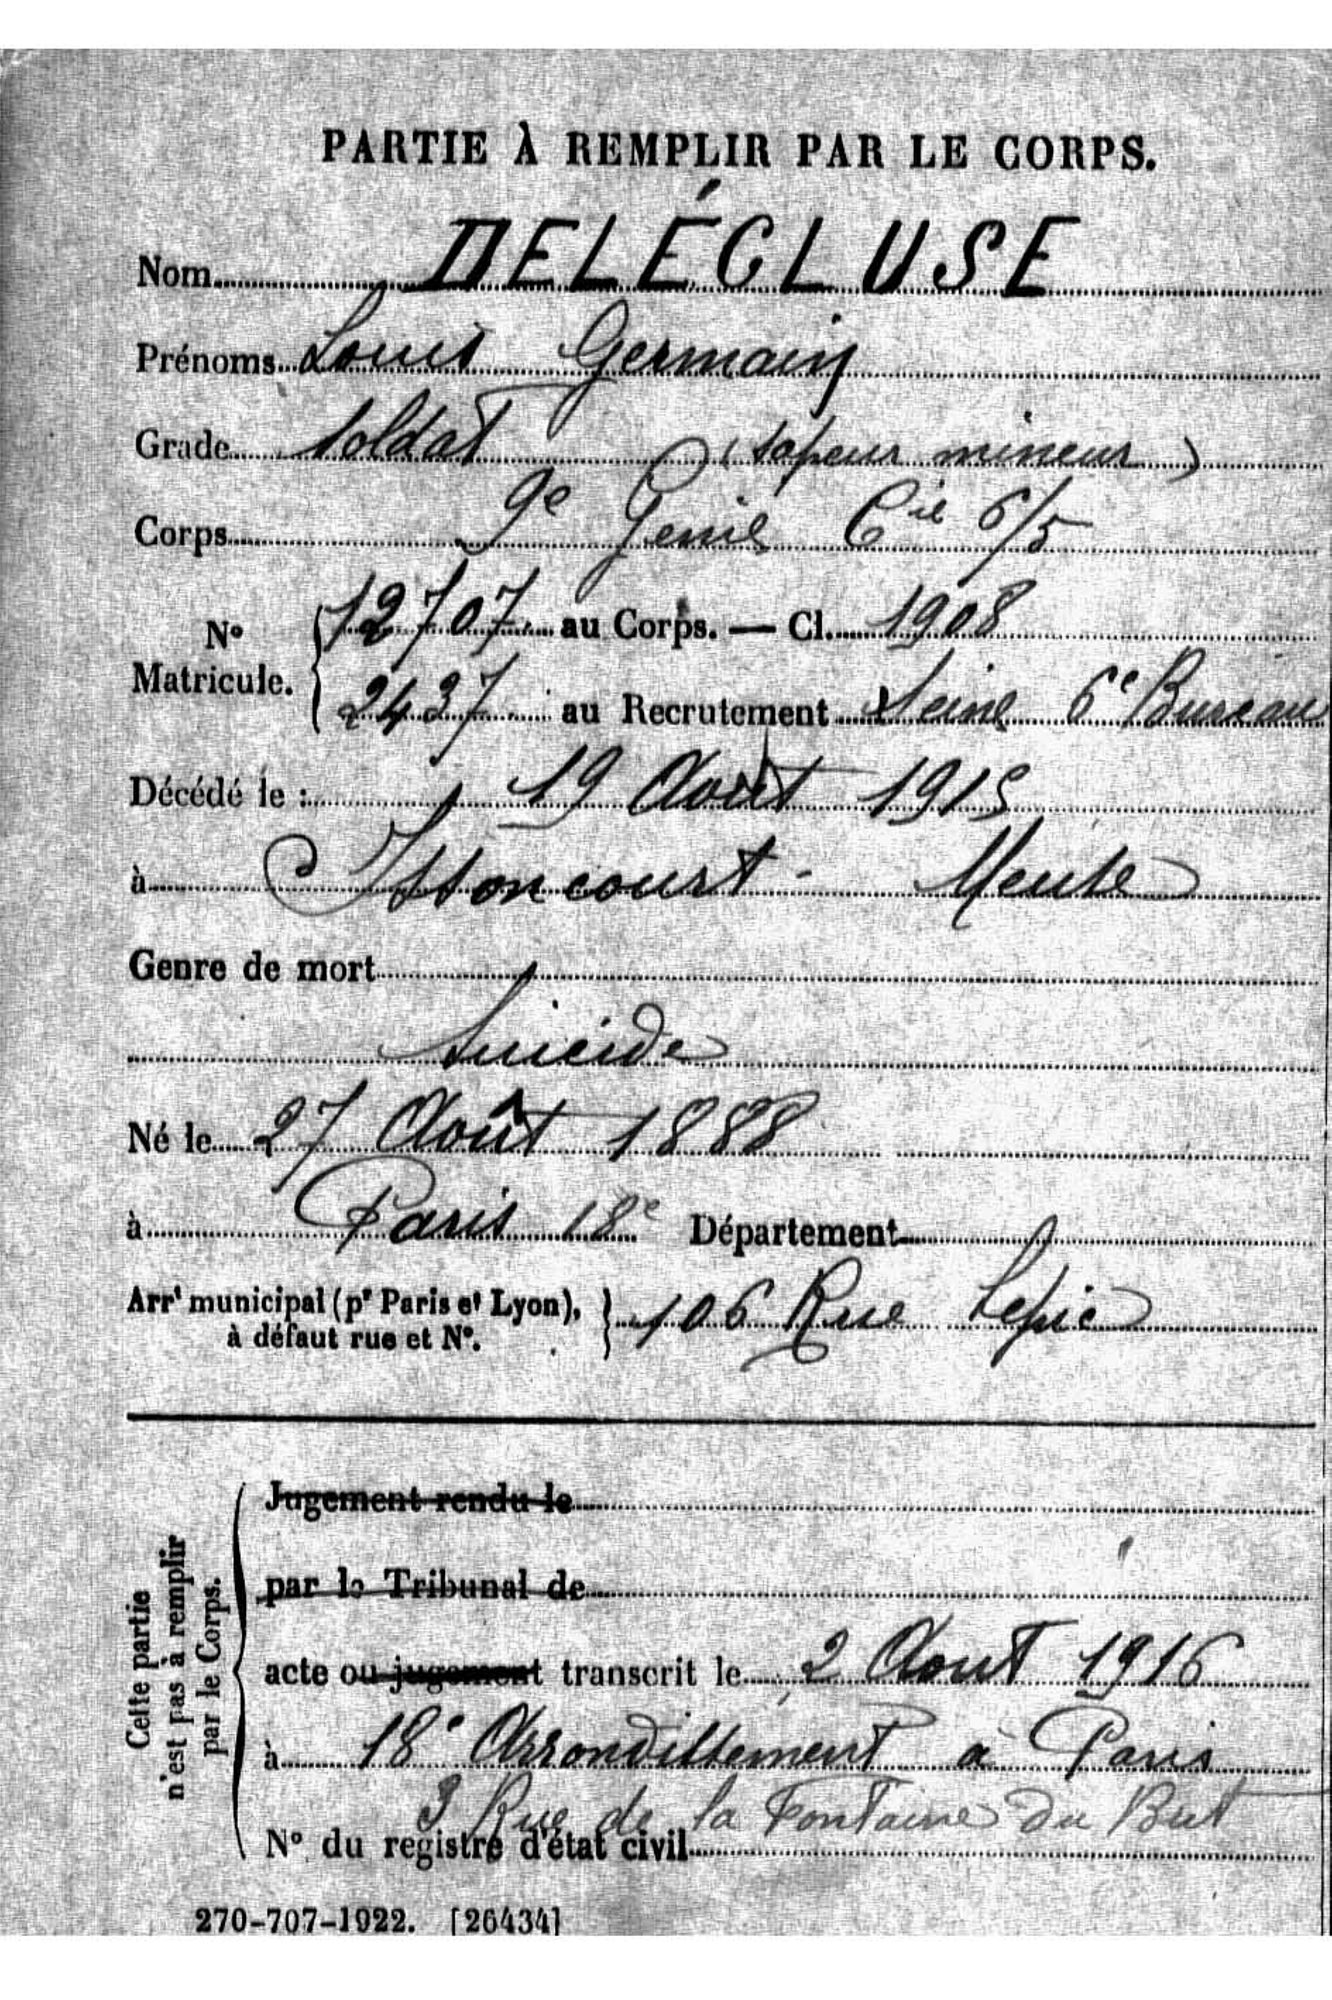 PARTIE À REMPLIR PAR LE CORPS.
Nom DELÉCLUSE
Prénoms Louis Germain
Grade soldat (sapeur mineur)
Corps 9e Génie Cie 6/5
No Matricule. { 12707 au Corps. — Cl. 1908
2437 au Recrutement Seine 6e Bureau
Décédé le : 19 Août 1915
à Issoncourt - Meuse
Genre de mort
Suicide
Né le 27 Août 1888
à Paris 18e Département
Arrt municipal (pr Paris et Lyon), à défaut rue et No. } 106 Rue Lepic
Cette partie n'est pas à remplir par le Corps.
Jugement rendu le
par le Tribunal de
acte ou jugement transcrit le 2 Aout 1916
à 18e Arrondissement a Paris
3 Rue de la Fontaine du But
No du registre d'état civil
270-707-1922. [26434]